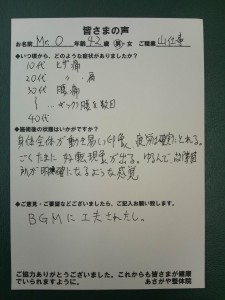 皆さまの声
お名前 Mr. O 年齢 42 歳 男・女 ご職業 山仕事
●いつ頃から、どのような症状がありましたか?
10代 ヒザ痛
20代 〃 肩
30代 腰痛
ギックリ腰を数回
40代
●施術後の状態はいかがですか?
身体全体が動き易い印象 疲労は確実にとれる。
ごくたまに好転現象が出る。ゆるんで、
所が明瞭になるような感覚
●ご意見・ご要望などございましたら、ご記入お願いします。
BGMに工夫されたし。
ご協力ありがとうございました。これからも皆さまが健康
でいられますように。 あさがや整体院